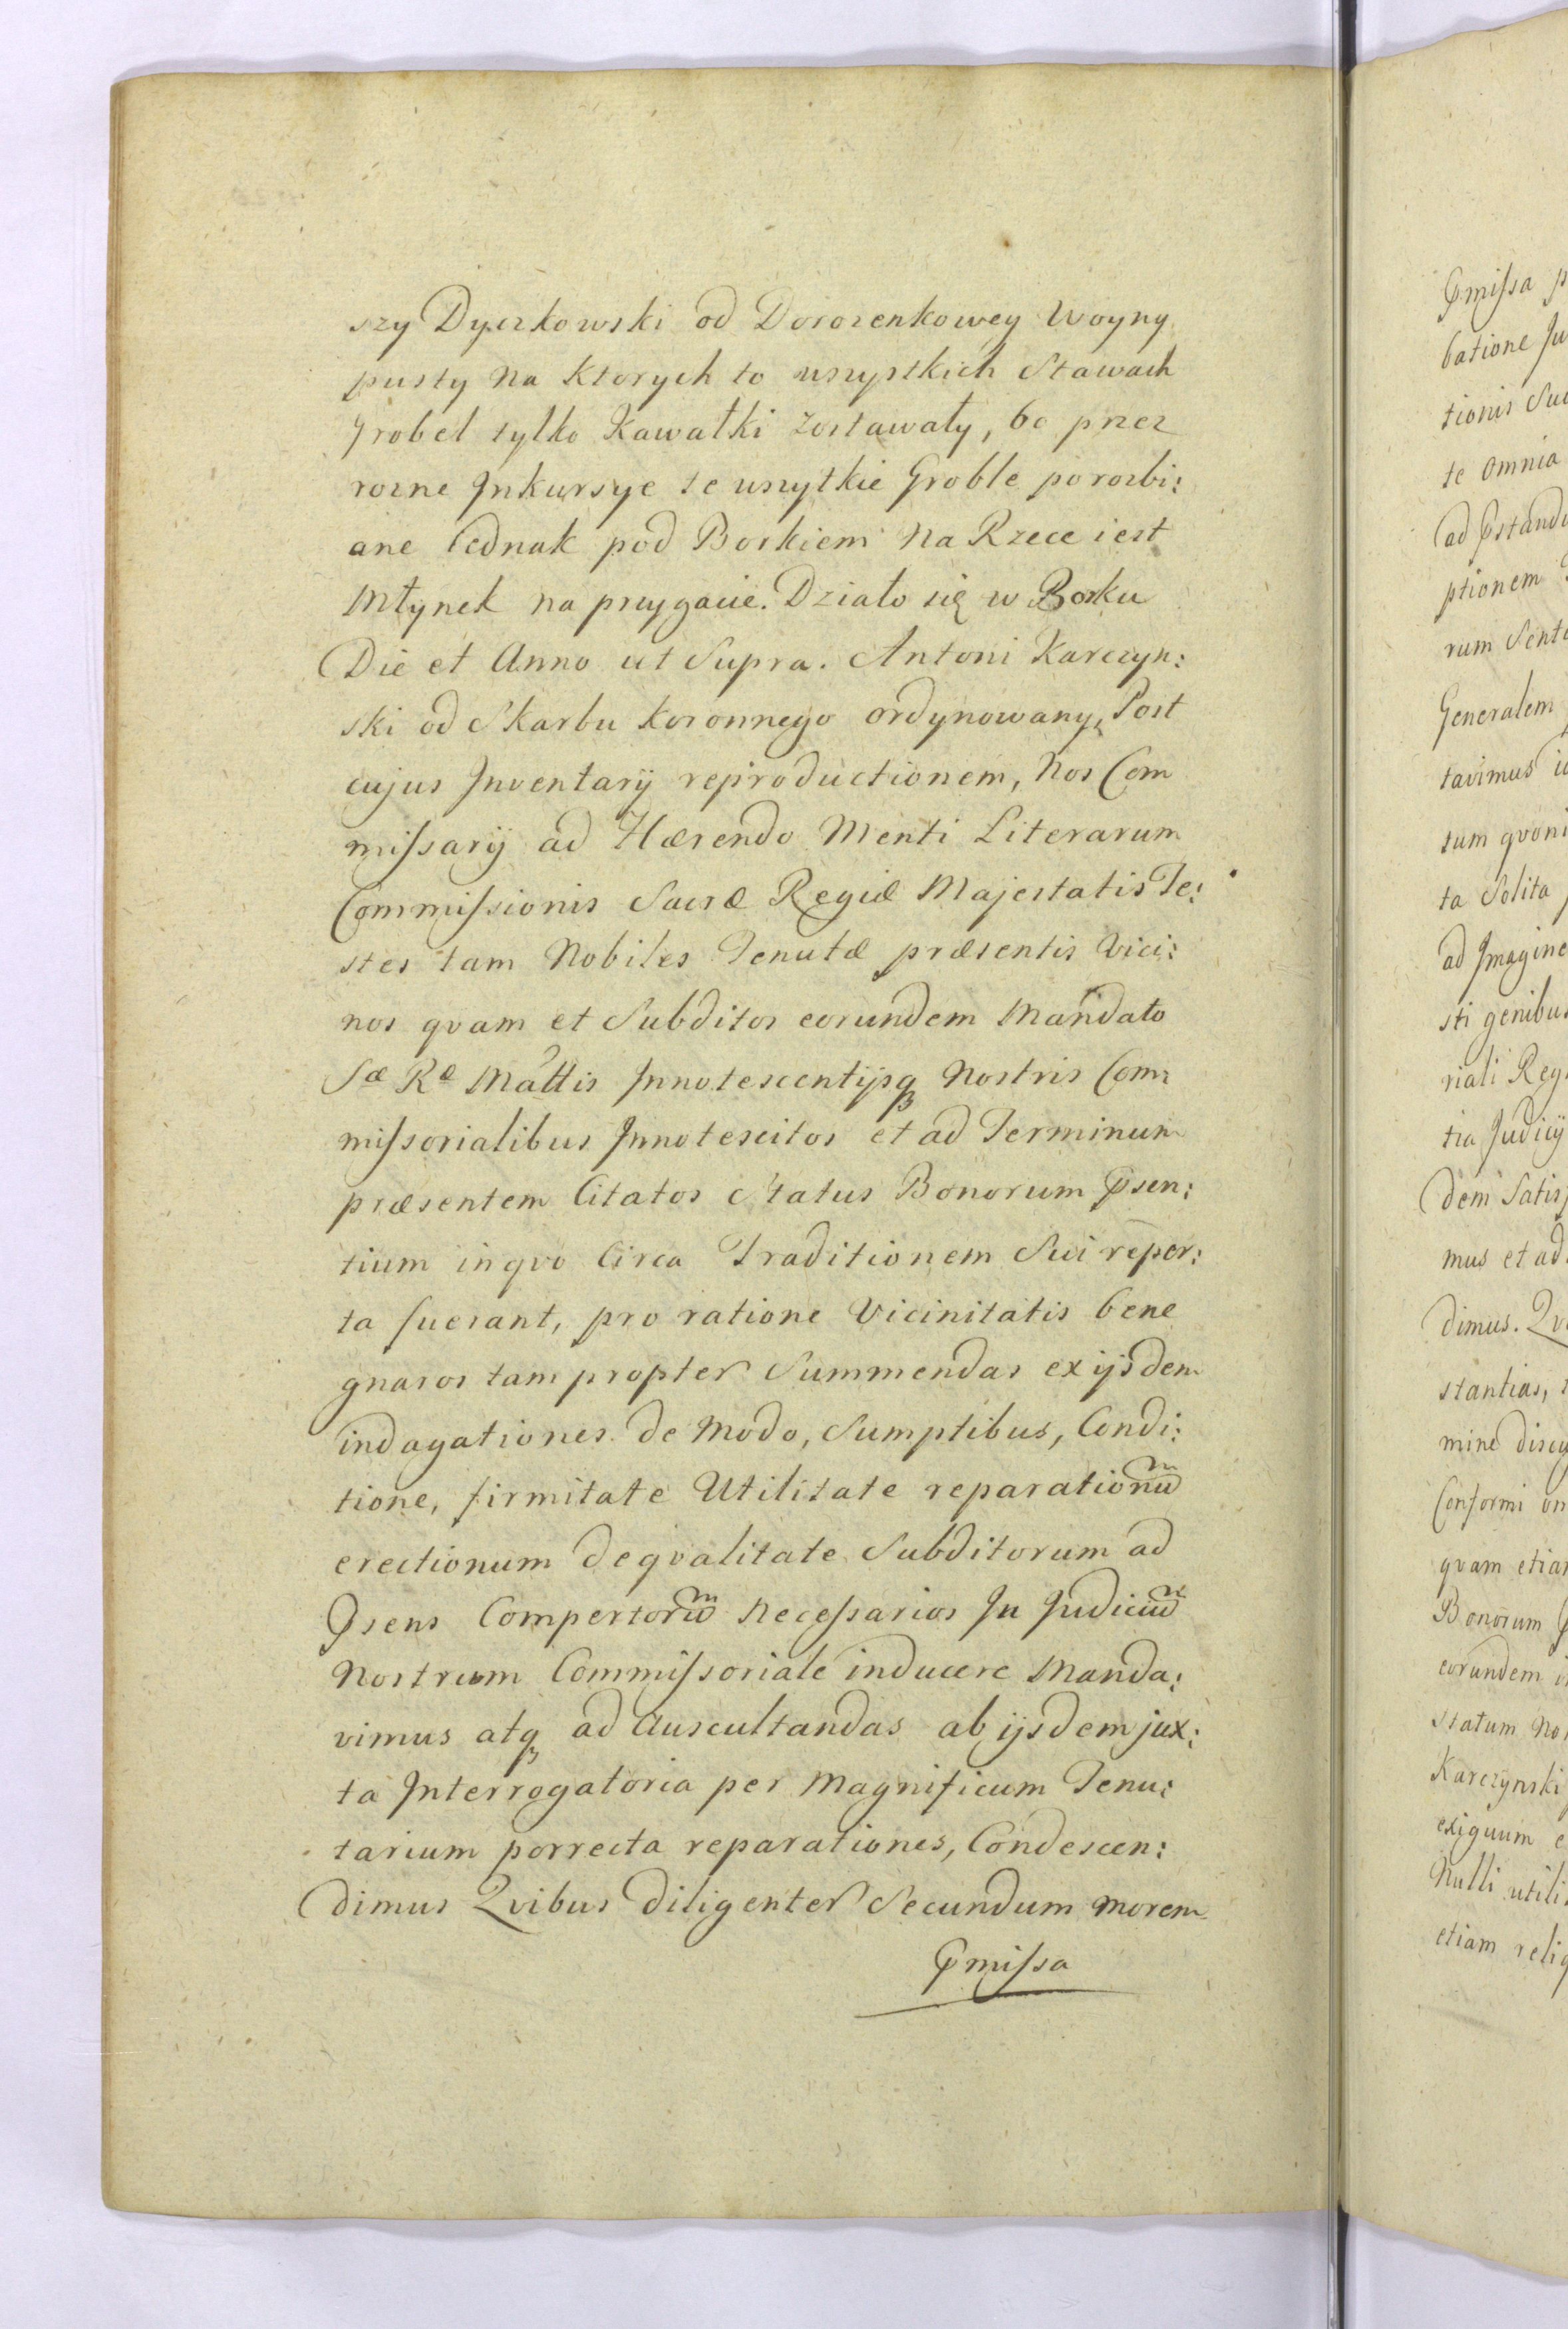 szy Dyczkowski od Dorozenkowey Woyny
pusty na ktorych to wszystkich Stawach
Grobel tylko Kawałki zostawały, bo przez
rozne Inkursye te wszytkie Groble porozbi:
ane Jednak pod Borkiem na Rzece iest
Młynek na przygacie. Działo się w Borku
Die et Anno ut Supra. Antoni Karczyn:
ski od Skarbu koronnego ordynowany, Post
cujus Inventarij reproductionem, Nos Com
missarij ad Hærendo Menti Literarum
Commissionis Sacræ Regiæ Majestatis Te:
stes tam Nobiles Tenutæ præsentis Vici:
nos qvam et Subditos eorundem Mandato
Sæ Ræ Mattis Innotescentijsq Nostris Com:
missorialibus Innotescitos et ad Terminum
præsentem Citatos Status Bonorum Psen:
tium in qvo Circa Traditionem Sui reper:
ta fuerant, pro ratione Vicinitatis bene
gnaros tam propter Summendas ex ijsdem
indagationes de Modo, Sumptibus, Condi:
tione, firmitate Utilitate reparationũ
erectionum de qvalitate Subditorum ad
Psens Compertoriũ Necessarios In Judiciũ
Nostrum Commissoriale inducere Manda:
vimus atq ad Auscultandas ab ijsdem jux:
ta Interrogatoria per Magnificum Tenu:
tarium porrecta reparationes, Condescen:
dimus Qvibus diligenter Secundum morem
Pmissa
Pmissa
batione
te omnia
ptionem
Generalem
tavimus
tum qvoni
ta Solita
sti genibus
tia Judicij
mus et ad
dimus.
stantias,
mine
Conformi
qvam etiam
Bonorum
eorundem
statum
Karczynski
exiguum
Nulli
etiam